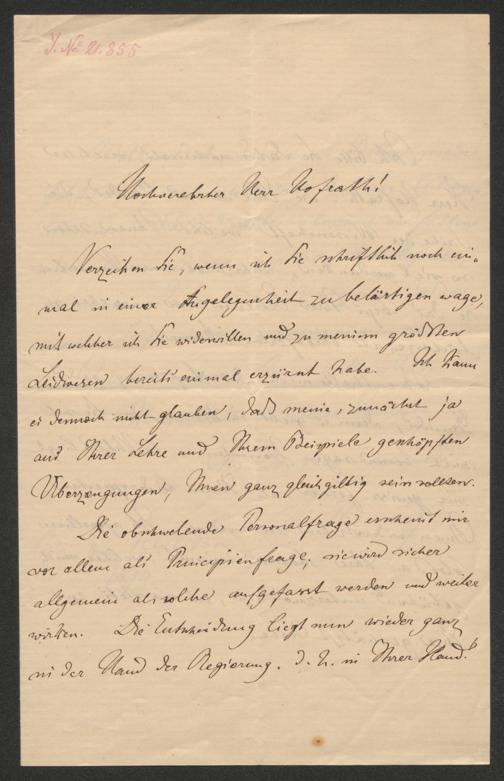 J. No 21.855
Hochverehrter Herr Hofrath!
Verzeihen Sie, wenn ich Sie schriftlich noch ein-
mal in einer Angelegenheit zu belästigen wage,
mit welcher ich Sie widerwillen und zu meinem größten
Leidwesen bereits einmal erzürnt habe. Ich kann
es dennoch nicht glauben, daß meine, zunächst ja
aus Ihrer Lehre und Ihrem Beispiele geschöpften
Überzeugungen, Ihnen ganz gleichgiltig sein sollten.
Die obschwebende Personalfrage erscheint mir
vor allem als Principienfrage; sie wird sicher
allgemein als solche aufgefasst werden und weiter
wirken. Die Entscheidung liegt nun wieder ganz
in der Hand der Regierung, d. h. in Ihrer Hand.